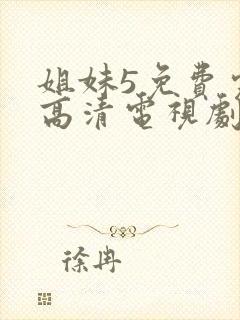 姐妹5免費
高清電視劇
徐冉